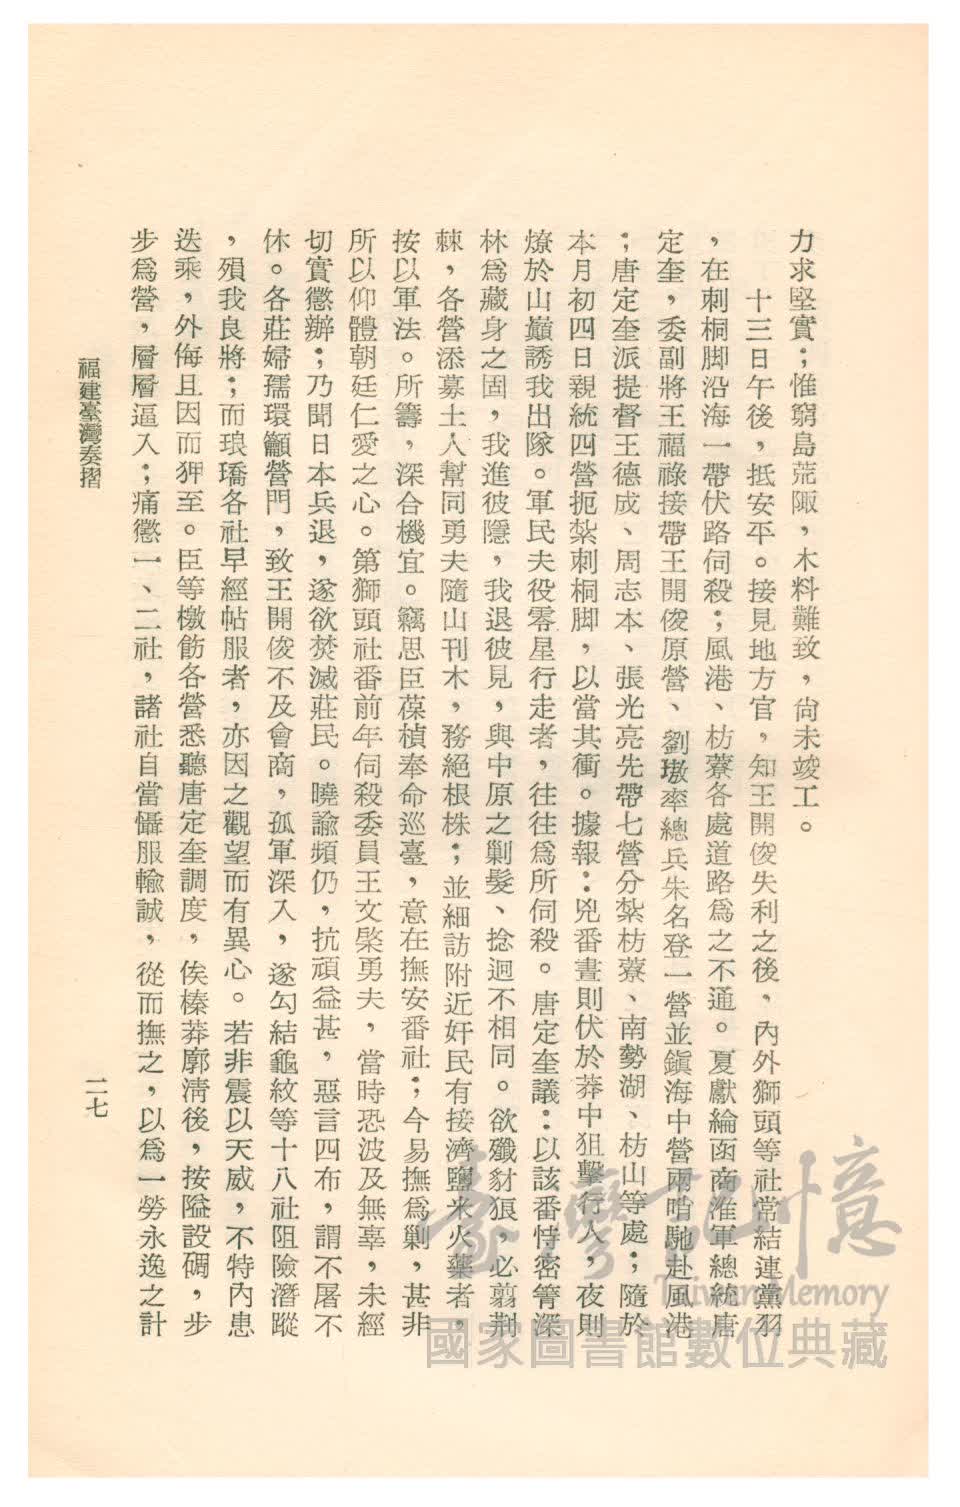 力求堅實；惟窮島荒陬，木料難致，尙未竣工。
十三日午後，抵安平。接見地方官，知王開俊失利之後，內外獅頭等社常結連黨羽
，在刺桐脚沿海一帶伏路伺殺；風港、枋藔各處道路爲之不通。夏獻綸函商淮軍總統唐
定奎，委副將王福祿接帶王開俊原營、劉璈率總兵朱名登一營並鎭海中營兩哨馳赴風港
；唐定奎派提督王德成、周志本、張光亮先帶七營分紮枋藔、南勢湖、枋山等處；隨於
本月初四日親統四營扼紮刺桐脚，以當其衝。據報：兇番晝則伏於莽中狙擊行人，夜則
燎於山巓誘我出隊。軍民夫役零星行走者，往往爲所伺殺。唐定奎議：以該番恃密箐深
林爲藏身之固，我進彼隱，我退彼見，與中原之剿髮、捻迥不相同。欲殲豺狼，必翦荆
棘，各營添募土人幫同勇夫隨山刊木，務絕根株；並細訪附近奸民有接濟鹽米火藥者，
按以軍法。所籌，深合機宜。竊思臣葆楨奉命巡臺，意在撫安番社；今易撫爲剿，甚非
所以仰體朝廷仁愛之心。第獅頭社番前年伺殺委員王文棨勇夫，當時恐波及無辜，未經
切實懲辦；乃聞日本兵退，遂欲焚滅莊民。曉諭頻仍，抗頑益甚，惡言四布，謂不屠不
休。各莊婦孺環籲營門，致王開俊不及會商，孤軍深入，遂勾結龜紋等十八社阻險潛蹤
，殞我良將；而琅𤩝各社早經帖服者，亦因之觀望而有異心。若非震以天威，不特內患
迭乘，外侮且因而狎至。臣等檄飭各營悉聽唐定奎調度，俟榛莽廓淸後，按隘設碉，步
步爲營，層層逼入；痛懲一、二社，諸社自當懾服輸誠，從而撫之，以爲一勞永逸之計
福建臺灣奏摺
二七
臺灣記憶
Taiwan Memory
國家圖書館數位典藏